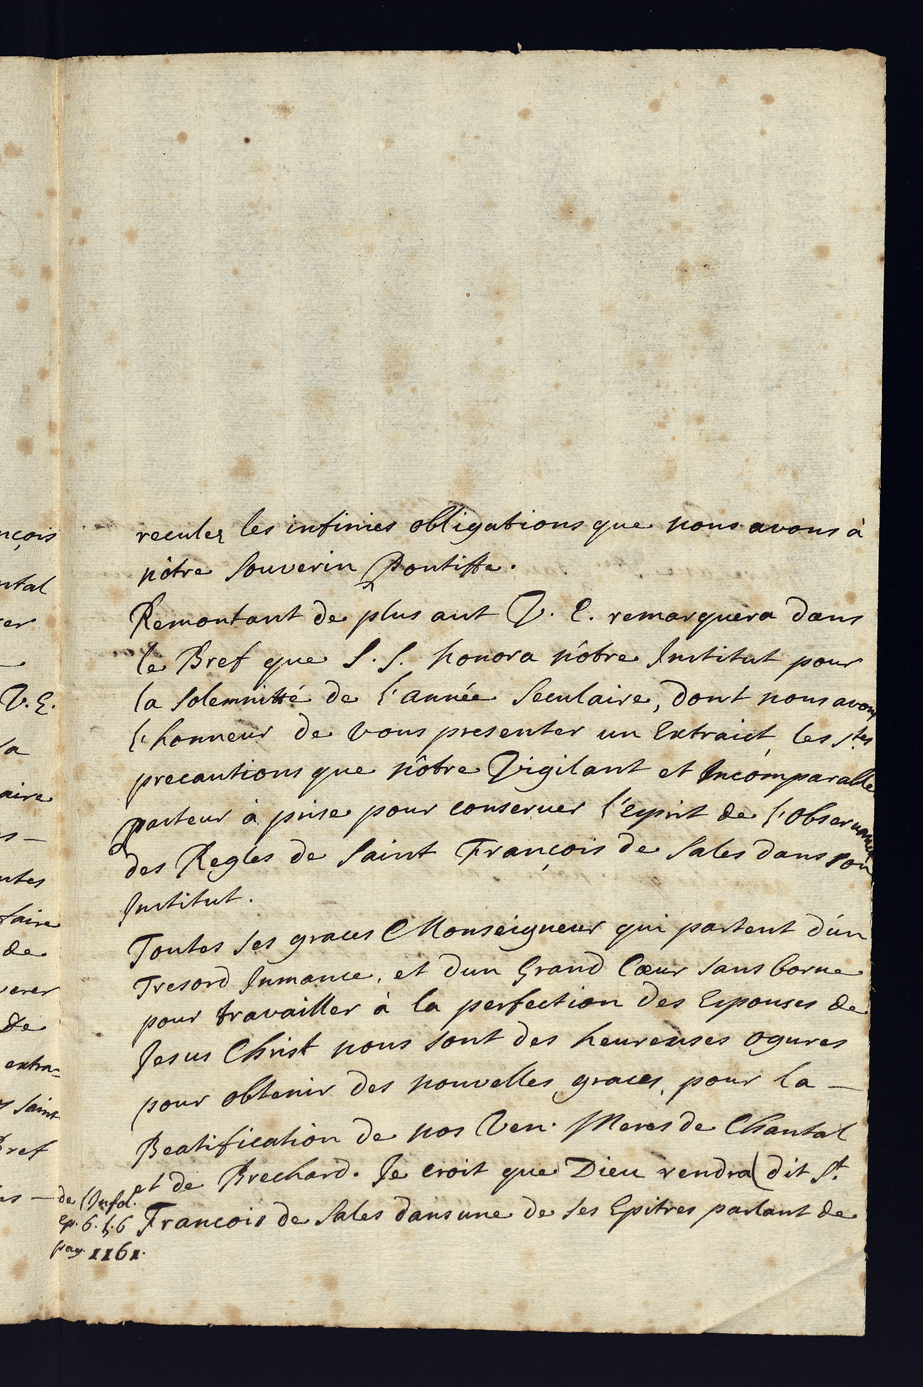 reculer les infinies obligations que nous avons à
nôtre Souverin Pontiffe.
Remontant de plus aut V. E. remarquera dans
le Bref que S. S. honora nôtre Institut pour
la Solemnitté de l'année Seculaire, dont nous avons
l'honneur de vous presenter un Extraict les stes
precautions que nôtre Vigilant et Incomparalle
Pasteur à prise pour conseruer l'esprit de l'Obseruance
des Regles de Saint François de Sales dans son
Institut.
Toutes ses graces Monseigneur qui partent d'un
Tresord Inmance, et dun Grand Cœur sans borne
pour travailler à la perfection des Espouses de
Jesus Christ nous sont des heureuses ogures
pour obtenir des nouvelles graces, pour la —
Beatification de nos Ven. Meres de Chantal
et de Brechard. Je croit que Dieu rendra (dit St.
Francois de Sales dans une de ses Epitres parlant de
de l'Infol.
Ep. 6. L. 6
pag. 1161.
nçois
ntal
er
—
V. E.
la
aire
s —
ntes
faire
de
verer
de
extra-
Saint
Bref
ns —